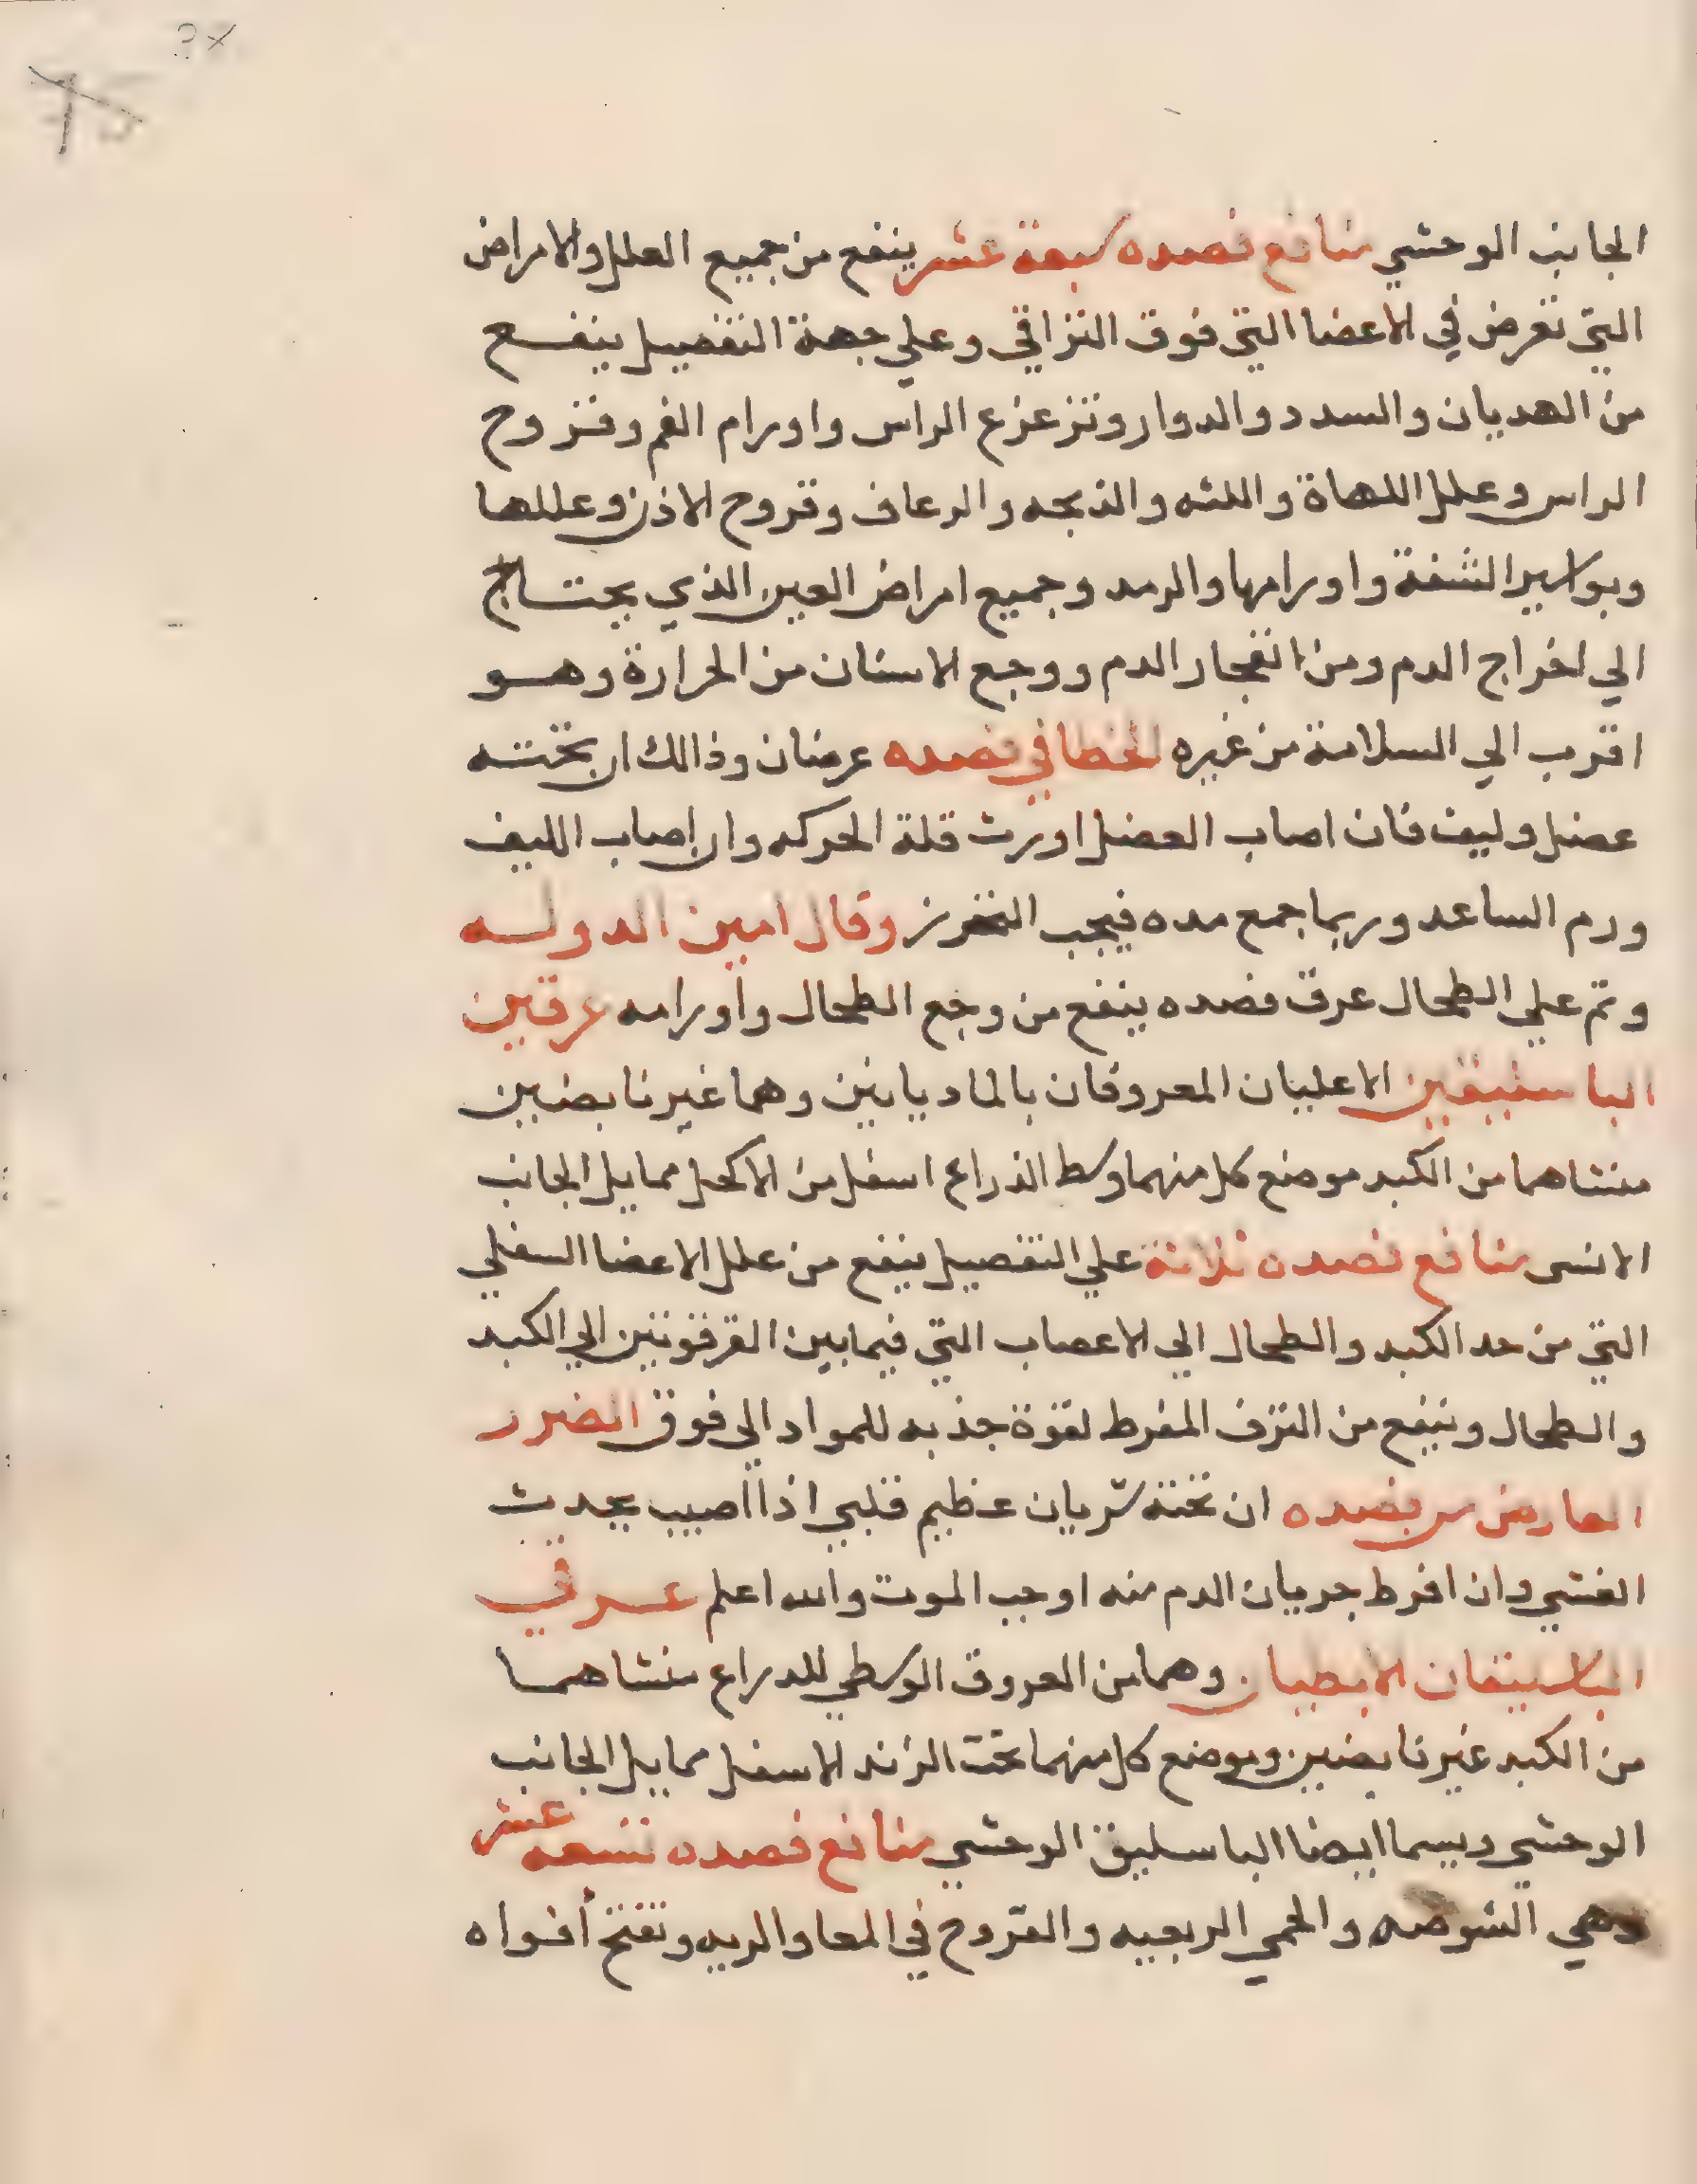 الجانب الوحشي منافع فصده سبعة عشر ينفع من جميع العلل والامراض
التي تعرض في الاعضا التي فوق التراقي وعلي جهة التفصيل ينفع
من الهديان والسدد والدوار وتزعزع الراس واورام الفم وقروح
الراس وعلل اللهاة واللثه والذبحه والرعاف وقروح الاذن وعللها
وبواسير الشفة واورامها والرمد وجميع امراض العين الذي يحتاج
الي اخراج الدم ومن انفجار الدم ووجع الاسنان من الحرارة وهو
اقرب الي السلامة من غيره الخطا في فصده عرضان وذالك ان تحته
عضل وليف فان اصاب العضل اورث قلة الحركه وان اصاب الليف
ورم الساعد وربما جمع مده فيجب التحرز وقال امين الدوله
وتم علي الطحال عرق فصده ينفع من وجع الطحال واورامه عرقين
الباسليقين الاعليان المعروفان بالماديانين وهما غير نابضين
منشاهما من الكبد موضع كل منهما وسط الذراع اسفل من الاكحل مما يل الجانب
الانسى منافع فصده ثلاثة علي التفصيل ينفع من علل الاعضا السفلي
التي من حد الكبد والطحال الي الاعصاب التي فيما بين الترقوتين الي الكبد
والطحال وينفع من النزف المفرط لقوة جذبه للمواد الي فوق الضرر
العارض من فصده ان تحته شريان عظيم قلبي اذا اصيب يحدث
الغشي وان افرط جريان الدم منه اوجب الموت والله اعلم عرقي
الباسليقان الابطيان وهما من العروق الوسطي للدراع منشاهما
من الكبد غير نابضين وموضع كل منهما تحت الزند الاسفل مما يل الجانب
الوحشي ويسما ايضا الباسليق الوحشي منافع فصده تسعه عشر
وهي الشوصه والحمي الربعيه والقروح في المعا والريه وتفتح أفواه